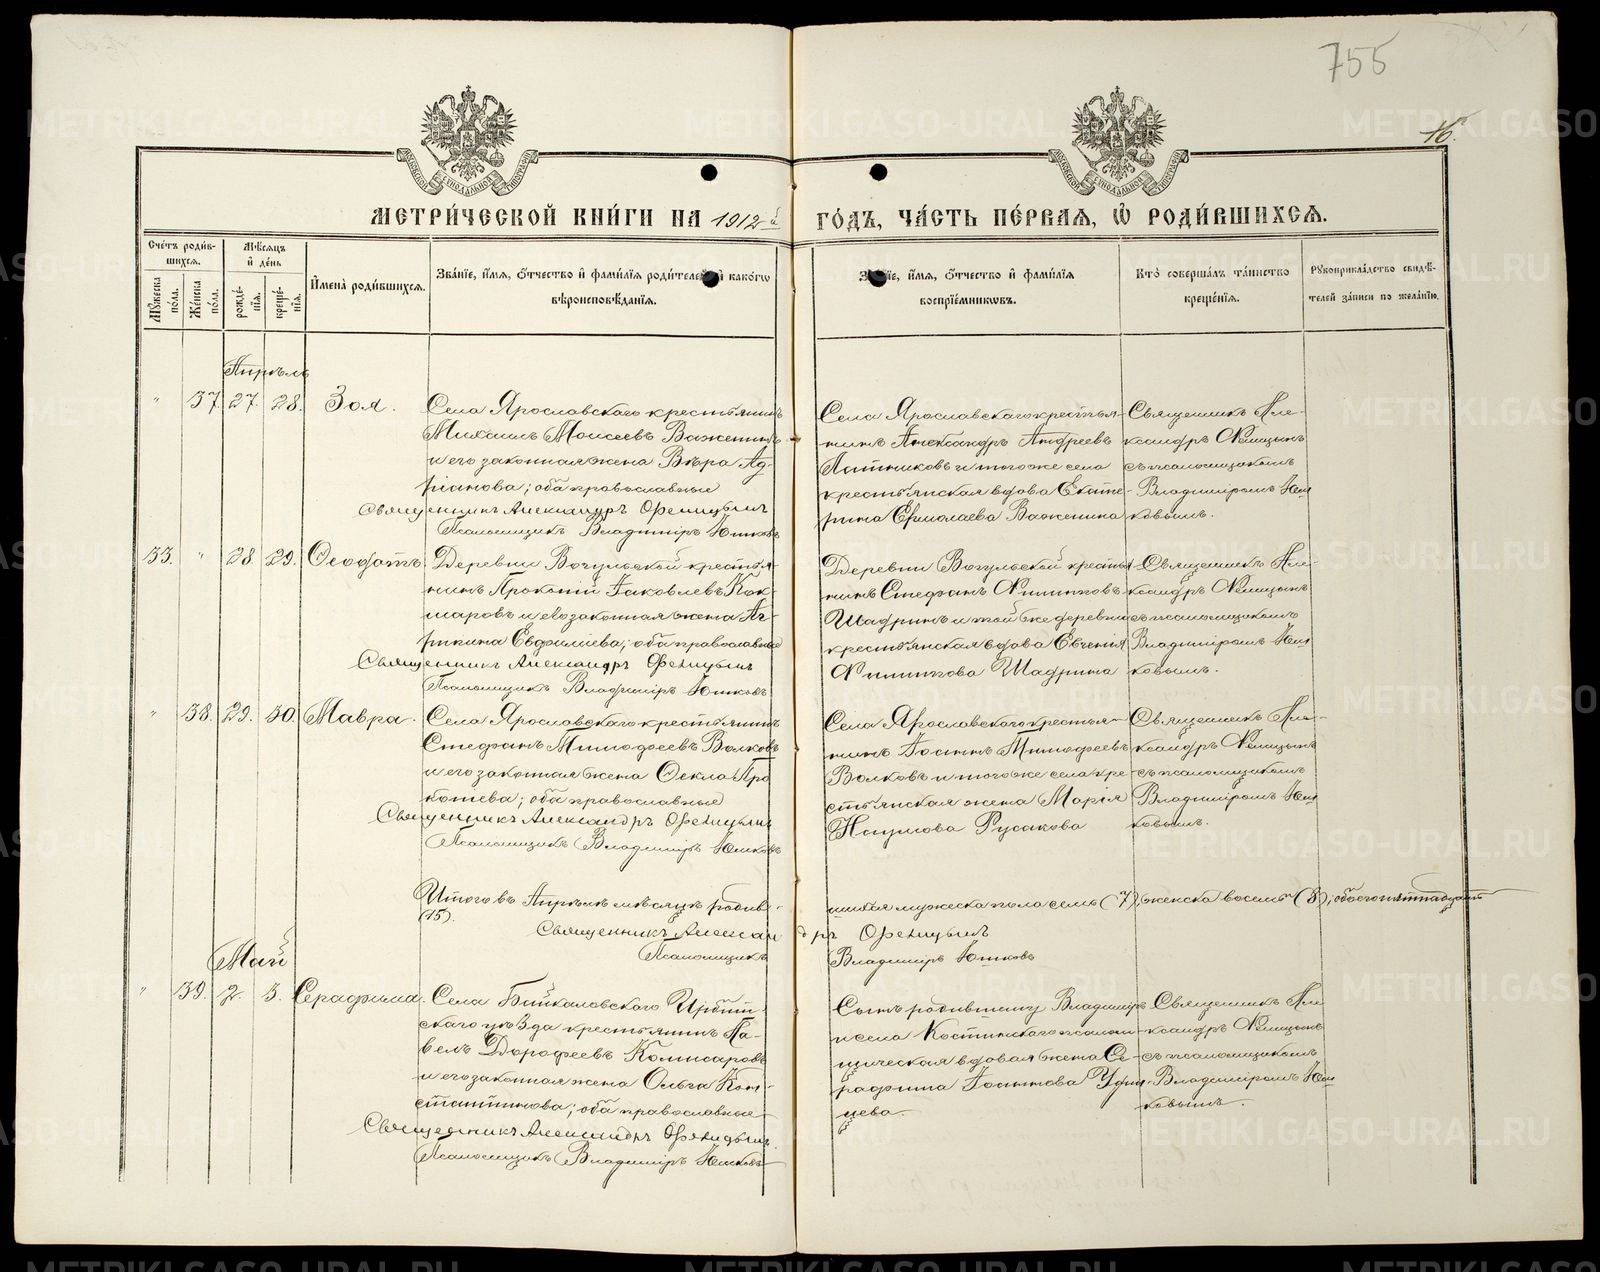 755
16.
МЕТРИ́ЧЕСКОЙ КНИ́ГИ НА 1912й ГО́ДЪ, ЧА́СТЬ ПЕ́РВАЯ, Ѿ РОДИ́ВШИХСѦ.
Сче́тъ роди́вшихся.
Мꙋжеска по́ла.
Же́нска по́ла.
Мѣ́сяцъ и҆ де́нь
рожде́нїя.
креще́нїя.
И҆мена̀ роди́вшихся.
Зва́нїе, и҆́мя, ѻ҆́тчество и҆ фами́лїя роди́телей, и҆ како́гѡ вѣроисповѣ́данїя.
Зва́нїе, и҆́мя, ѻ҆́тчество и҆ фами́лїя воспрїе́мниковъ.
Кто̀ соверша́лъ та́инство креще́нїя.
Рꙋкоприкла́дство свидѣ́телей за́писи по жела́нїю.
Апрѣль
" 37. 27. 28. Зоя.
Села Ярославскаго крестьянинъ
Михаилъ Моисеевъ Важенинъ
и его законная жена Вѣра Ад-
ріанова; оба православные
Священникъ Александръ
Псаломщикъ Владиміръ Юшковъ
Села Ярославскаго крестья-
нинъ Александръ Андреевъ
и тогоже села
крестьянская вдова Екате-
рина Ермолаева Важенина
Священникъ Але-
ксандръ
съ псаломщикомъ
Владиміромъ Юш
ковымъ.
33. " 28. 29. Ѳеодотъ.
Деревни Вогульской крестья-
нинъ Прокопій Іаковлевъ Кок-
шаровъ и его законная жена Аг-
рипина Евфиміева; оба православные
Священникъ Александръ
Псаломщикъ Владиміръ Юшковъ
Деревни Вогульской кресть-
нинъ Стефанъ Филипповъ
Шадринъ и той же деревни
крестьянская вдова Евгенія
Филиппова Шадрина
Священникъ Але-
ксандръ
съ псаломщикомъ
Владиміромъ Юш
ковымъ.
" 38. 29. 30. Мавра.
Села Ярославскаго крестьянинъ
Стефанъ Тимофеевъ Волковъ
и его законная жена Ѳекла Про
копіева; оба православные
Священникъ Александръ
Псаломщикъ Владиміръ Юшковъ
Села Ярославскаго крестья-
нинъ Іоаннъ Тимофеевъ
Волковъ и тогоже села кре-
стьянская жена Марія
Наумова Русакова
Священникъ Але-
ксандръ
съ псаломщикомъ
Владиміромъ Юш
ковымъ.
Итого въ Апрѣлѣ мѣсяцѣ родив-шихся мужеска пола семь (7), женска восемь (8); обоего пятнадцать
(15).
Священникъ Александръ
Псаломщикъ Владиміръ Юшковъ
Май
" 39. 2. 3. Серафима.
Села Байкаловскаго Ирбит-
скаго уѣзда крестьянинъ Па-
велъ Дорофеевъ Комисаровъ
и его законная жена Ольга Кон-
стантинова; оба православные
Священникъ Александръ
Псаломщикъ Владиміръ Юшковъ
Сынъ родившему Владиміръ
и села Костинскаго псалом-
щическая вдовая жена Се-
рафима Іоаннова Удин-
цева.
Священникъ Але-
ксандръ
съ псаломщикомъ
Владиміромъ Юш
ковымъ.